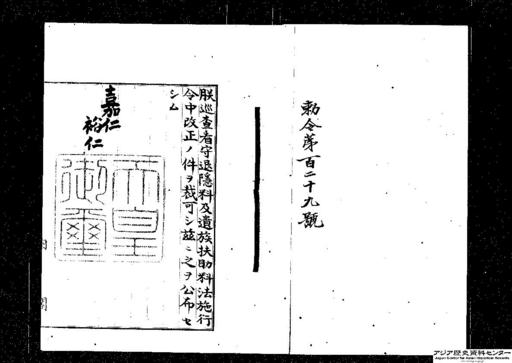 勅令第百二十九號
朕巡査看守退隱料及遺族扶助料法施行
令中改正ノ件ヲ裁可シ茲ニ之ヲ公布セ
シム
嘉仁
裕仁
天皇
御璽
内
閣
アジア歴史資料センター
Japan Center for Asian Historical Records